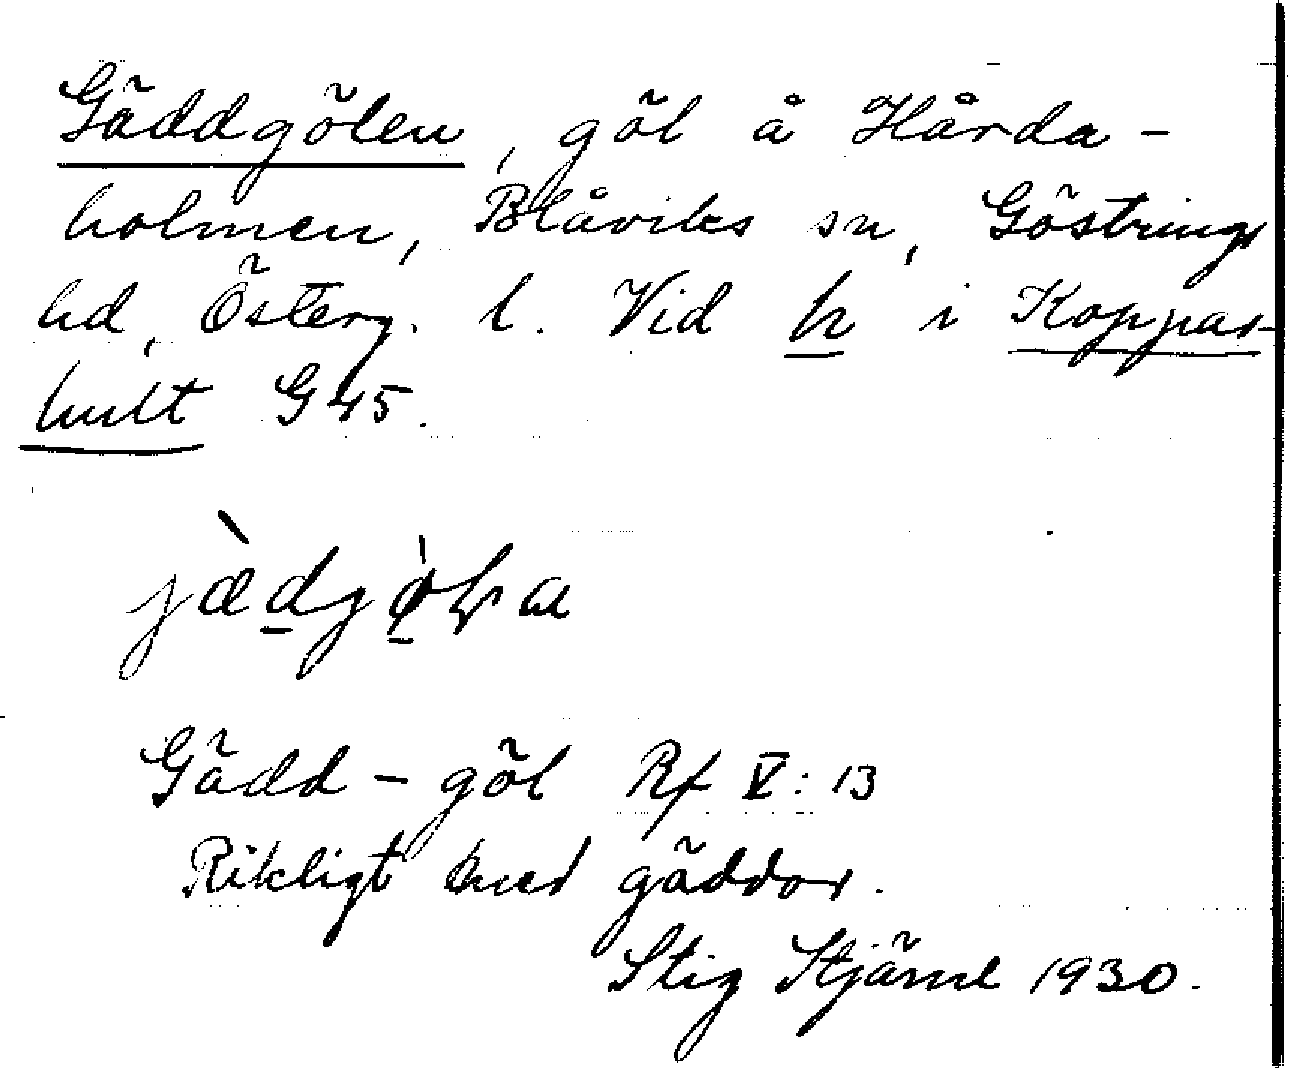 Gäddgölen, göl å Hårda-
holmen, Blåviks sn, Göstrings
hd, Österg. l. Vid h i Koppar-
hult G 45.
jæ̀dgø̀ɫa
Gädd - göl Rf V: 13
Rikligt med gäddor.
Stig Stjärne 1930.